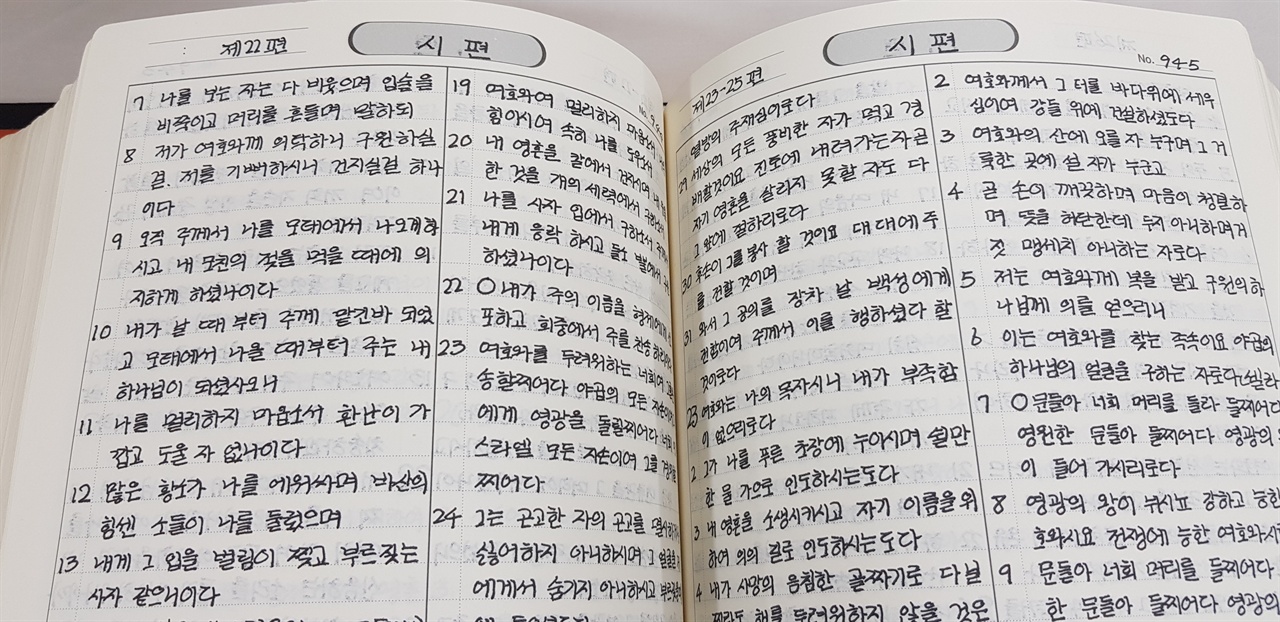 제22편
시 편
7 나를 보는 자는 다 비웃으며 입술을
비쭉이고 머리를 흔들며 말하되
8 저가 여호와께 의탁하니 구원하실
걸, 저를 기뻐하시니 건지실걸 하나
이다
9 오직 주께서 나를 모태에서 나오게하
시고 내 모친의 젖을 먹을 때에 의
지하게 하셨나이다
10 내가 날 때부터 주께 맡긴바 되었
고 모태에서 나올 때부터 주는 내
하나님이 되셨사오니
11 나를 멀리하지 마옵소서 환난이 가
깝고 도울 자 없나이다
12 많은 황소가 나를 에워싸며 바산의
힘센 소들이 나를 둘렀으며
13 내게 그 입을 벌림이 찢고 부르짖는
사자 같으니이다
19 여호와여 멀리하지 마옵소서
힘이시여 속히 나를 도우서
20 내 영혼을 칼에서 건지시며 내
한 것을 개의 세력에서 구하소서
21 나를 사자 입에서 구하소서
내게 응락 하시고 들소 뿔에서
하셨나이다
22 ○내가 주의 이름을 형제에게
포하고 회중에서 주를 찬송하리이다
23 여호와를 두려워하는 너희여
송할찌어다 야곱의 모든 자손이여
에게 영광을 돌릴찌어다 너희
스라엘 모든 자손이여 그를 경외할
찌어다
24 그는 곤고한 자의 곤고를 멸시하거나
싫어하지 아니하시며 그 얼굴을
에게서 숨기지 아니하시고
제23-25편
시 편
No. 945
열방의 주재심이로다
29 세상의 모든 풍비한 자가 먹고 경
배할것이요 진토에 내려가는자곧
자기 영혼을 살리지 못할 자도 다
그 앞에 절하리로다
30 후손이 그를 봉사 할 것이요 대대에 주
를 전할 것이며
31 와서 그 공의를 장차 날 백성에게
전함이여 주께서 이를 행하셨다 할
것이로다
23 여호와는 나의 목자시니 내가 부족함
이 없으리로다
2 그가 나를 푸른 초장에 누이시며 쉴만
한 물 가으로 인도하시는도다
3 내 영혼을 소생시키시고 자기 이름을위
하여 의의 길로 인도하시는도다
4 내가 사망의 음침한 골짜기로 다닐
찌라도 해를 두려워하지 않을 것은
2 여호와께서 그 터를 바다위에 세우
심이여 강들 위에 건설하셨도다
3 여호와의 산에 오를 자 누구며 그 거
룩한 곳에 설 자가 누군고
4 곧 손이 깨끗하며 마음이 청결하
며 뜻을 허탄한데 두지 아니하며거
짓 맹세치 아니하는 자로다
5 저는 여호와께 복을 받고 구원의하
나님께 의를 얻으리니
6 이는 여호와를 찾는 족속이요 야곱의
하나님의 얼굴을 구하는 자로다(셀라
7 ○문들아 너희 머리를 들라 들찌어다
영원한 문들아 들찌어다 영광의
이 들어 가시리로다
8 영광의 왕이 뉘시뇨 강하고 능한
호와시요 전쟁에 능한 여호와시
9 문들아 너희 머리를 들찌어다
한 문들아 들찌어다 영광의